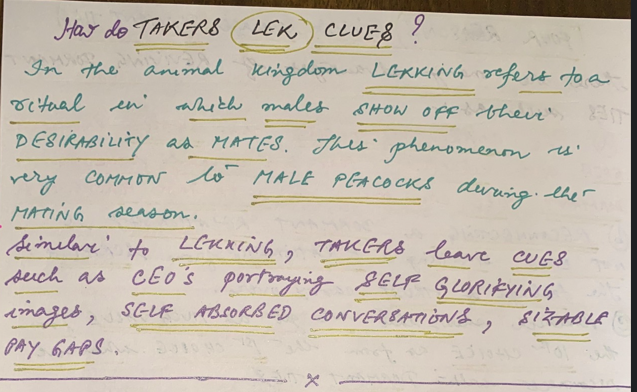 How do TAKERS LEK CLUES ?
In the animal kingdom LEKKING refers to a
ritual in which males SHOW OFF their
DESIRABILITY as MATES. This phenomenon is
very COMMON to MALE PEACOCKS during the
MATING season.
Similar to LEKKING, TAKERS leave CUES
such as CEO's portraying SELF GLORIFYING
images, SELF ABSORBED CONVERSATIONS, SIZABLE
PAY GAPS.
x